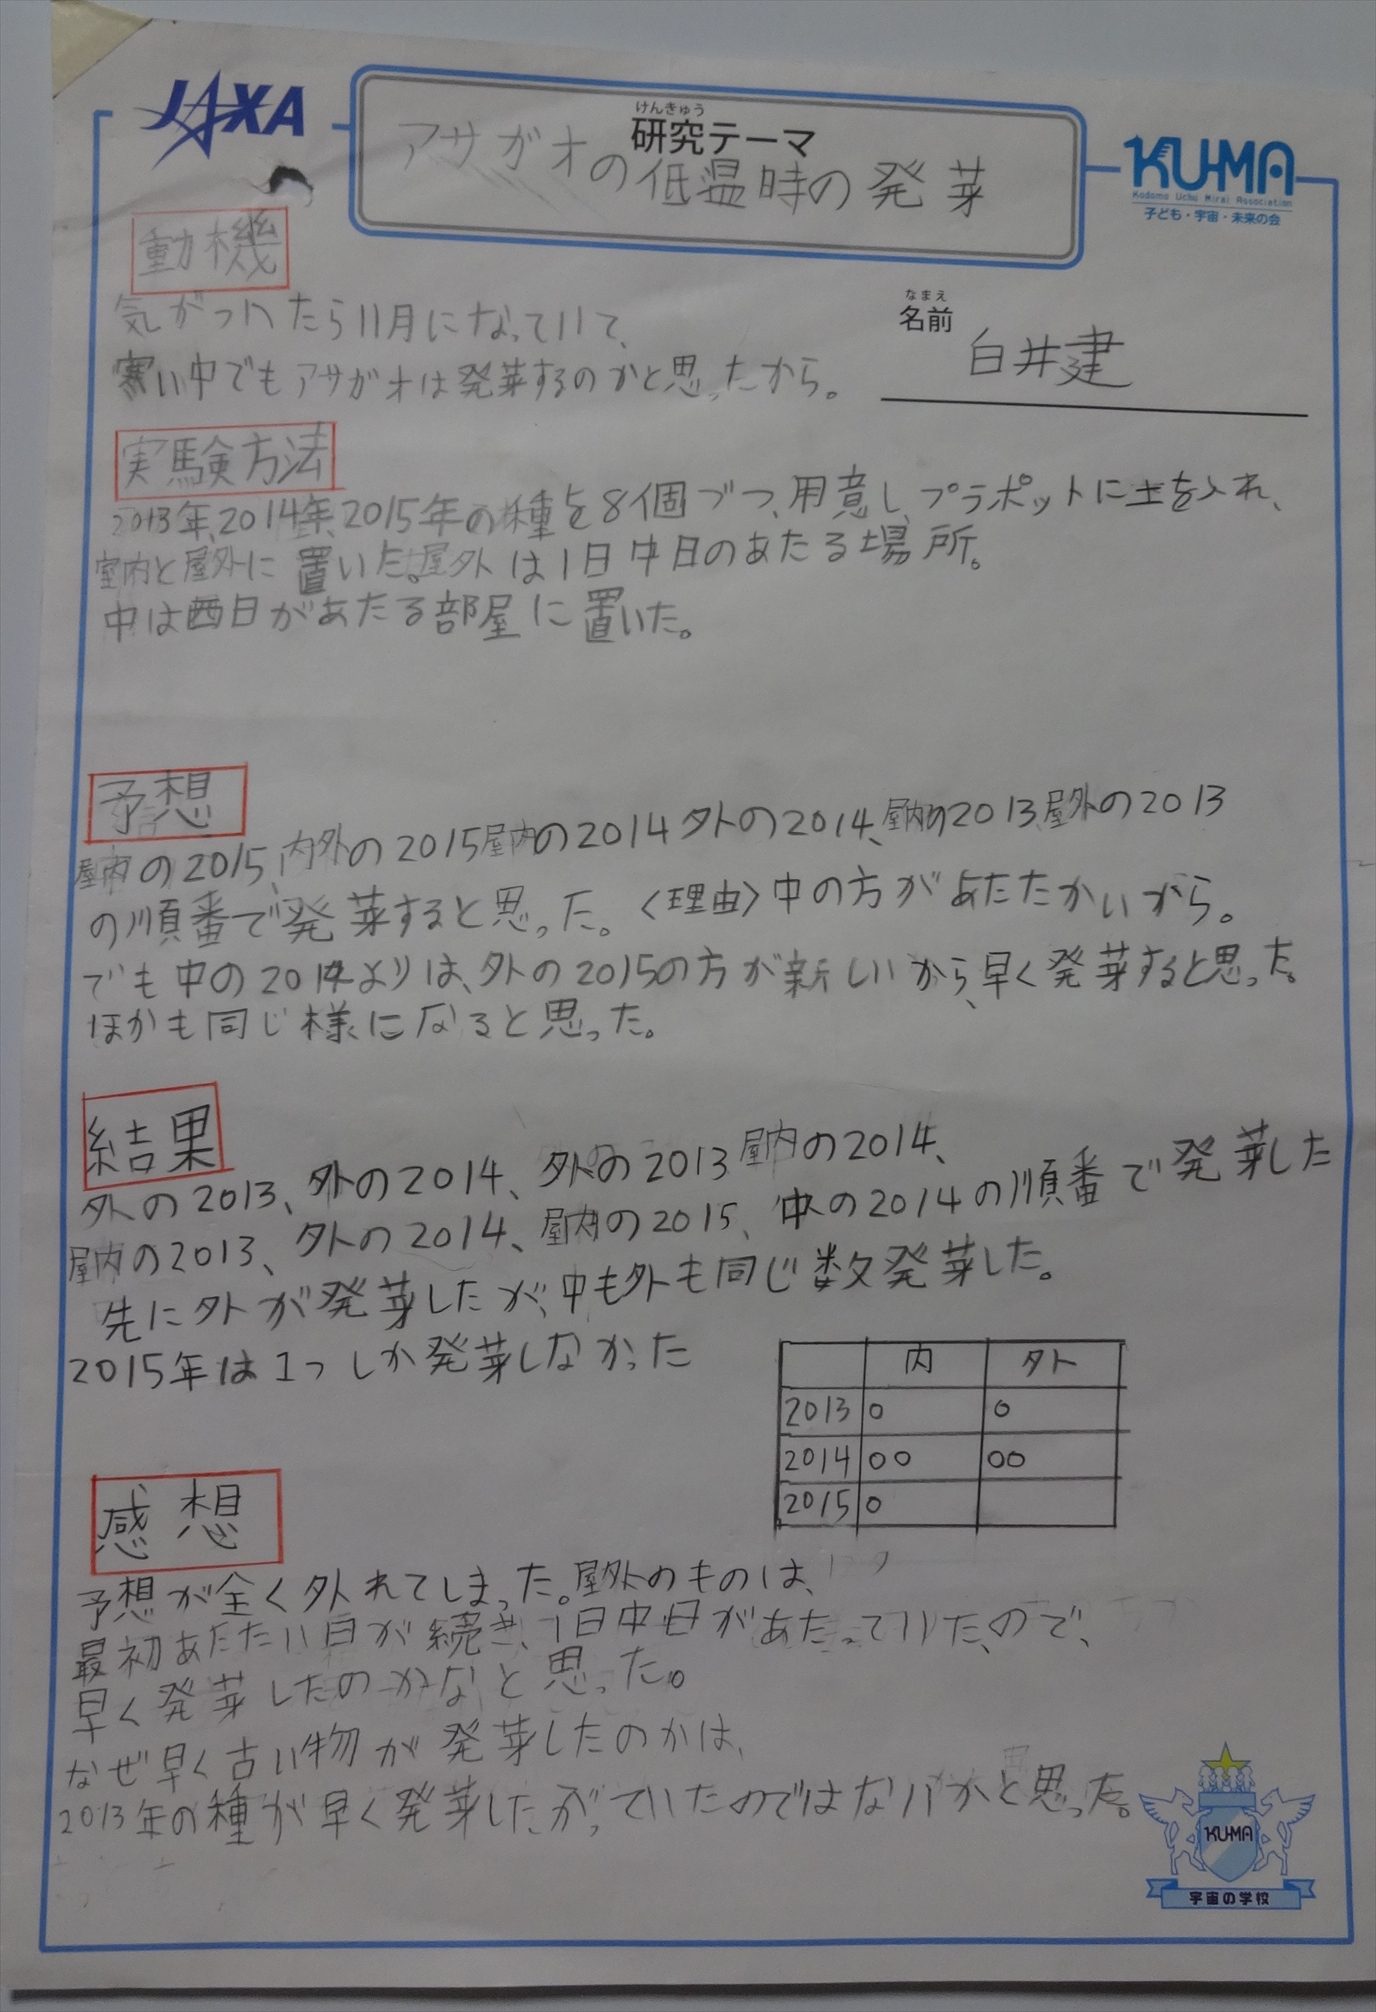 JAXA
けんきゅう
研究テーマ
アサガオの低温時の発芽
KU-MA
Kodomo Uchu Mirai Association
子ども・宇宙・未来の会
動機
気がついたら11月になっていて、
寒い中でもアサガオは発芽するのかと思ったから。
なまえ
名前
白井建
実験方法
2013年、2014年、2015年の種を8個づつ、用意し、プラポットに土を入れ、
室内と屋外に置いた。屋外は1日中日のあたる場所。
中は西日があたる部屋に置いた。
予想
屋内の2015、内外の2015屋内の2014外の2014、屋内の2013、屋外の2013
の順番で発芽すると思った。〈理由〉中の方があたたかいから。
でも中の2014よりは、外の2015の方が新しいから、早く発芽すると思った。
ほかも同じ様になると思った。
結果
外の2013、外の2014、外の2013屋内の2014、
屋内の2013、外の2014、屋内の2015、中の2014の順番で発芽した
先に外が発芽したが、中も外も同じ数発芽した。
2015年は1つしか発芽しなかった
内 外
2013 ○ ○
2014 ○○ ○○
2015 ○
感想
予想が全く外れてしまった。屋外のものは、
最初あたたい日が続き、1日中日があたっていた、ので、
早く発芽したのかなと思った。
なぜ早く古い物が発芽したのかは、
2013年の種が早く発芽したがっていたのではないかと思った。
KU-MA
宇宙の学校